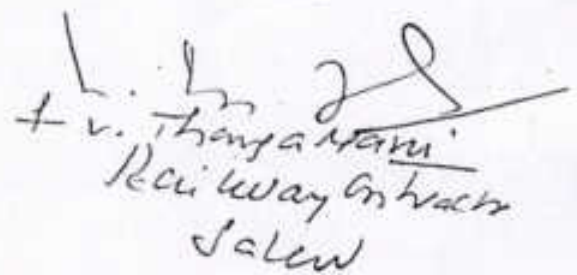 V. Thangamani
Railway Contractor
Salem